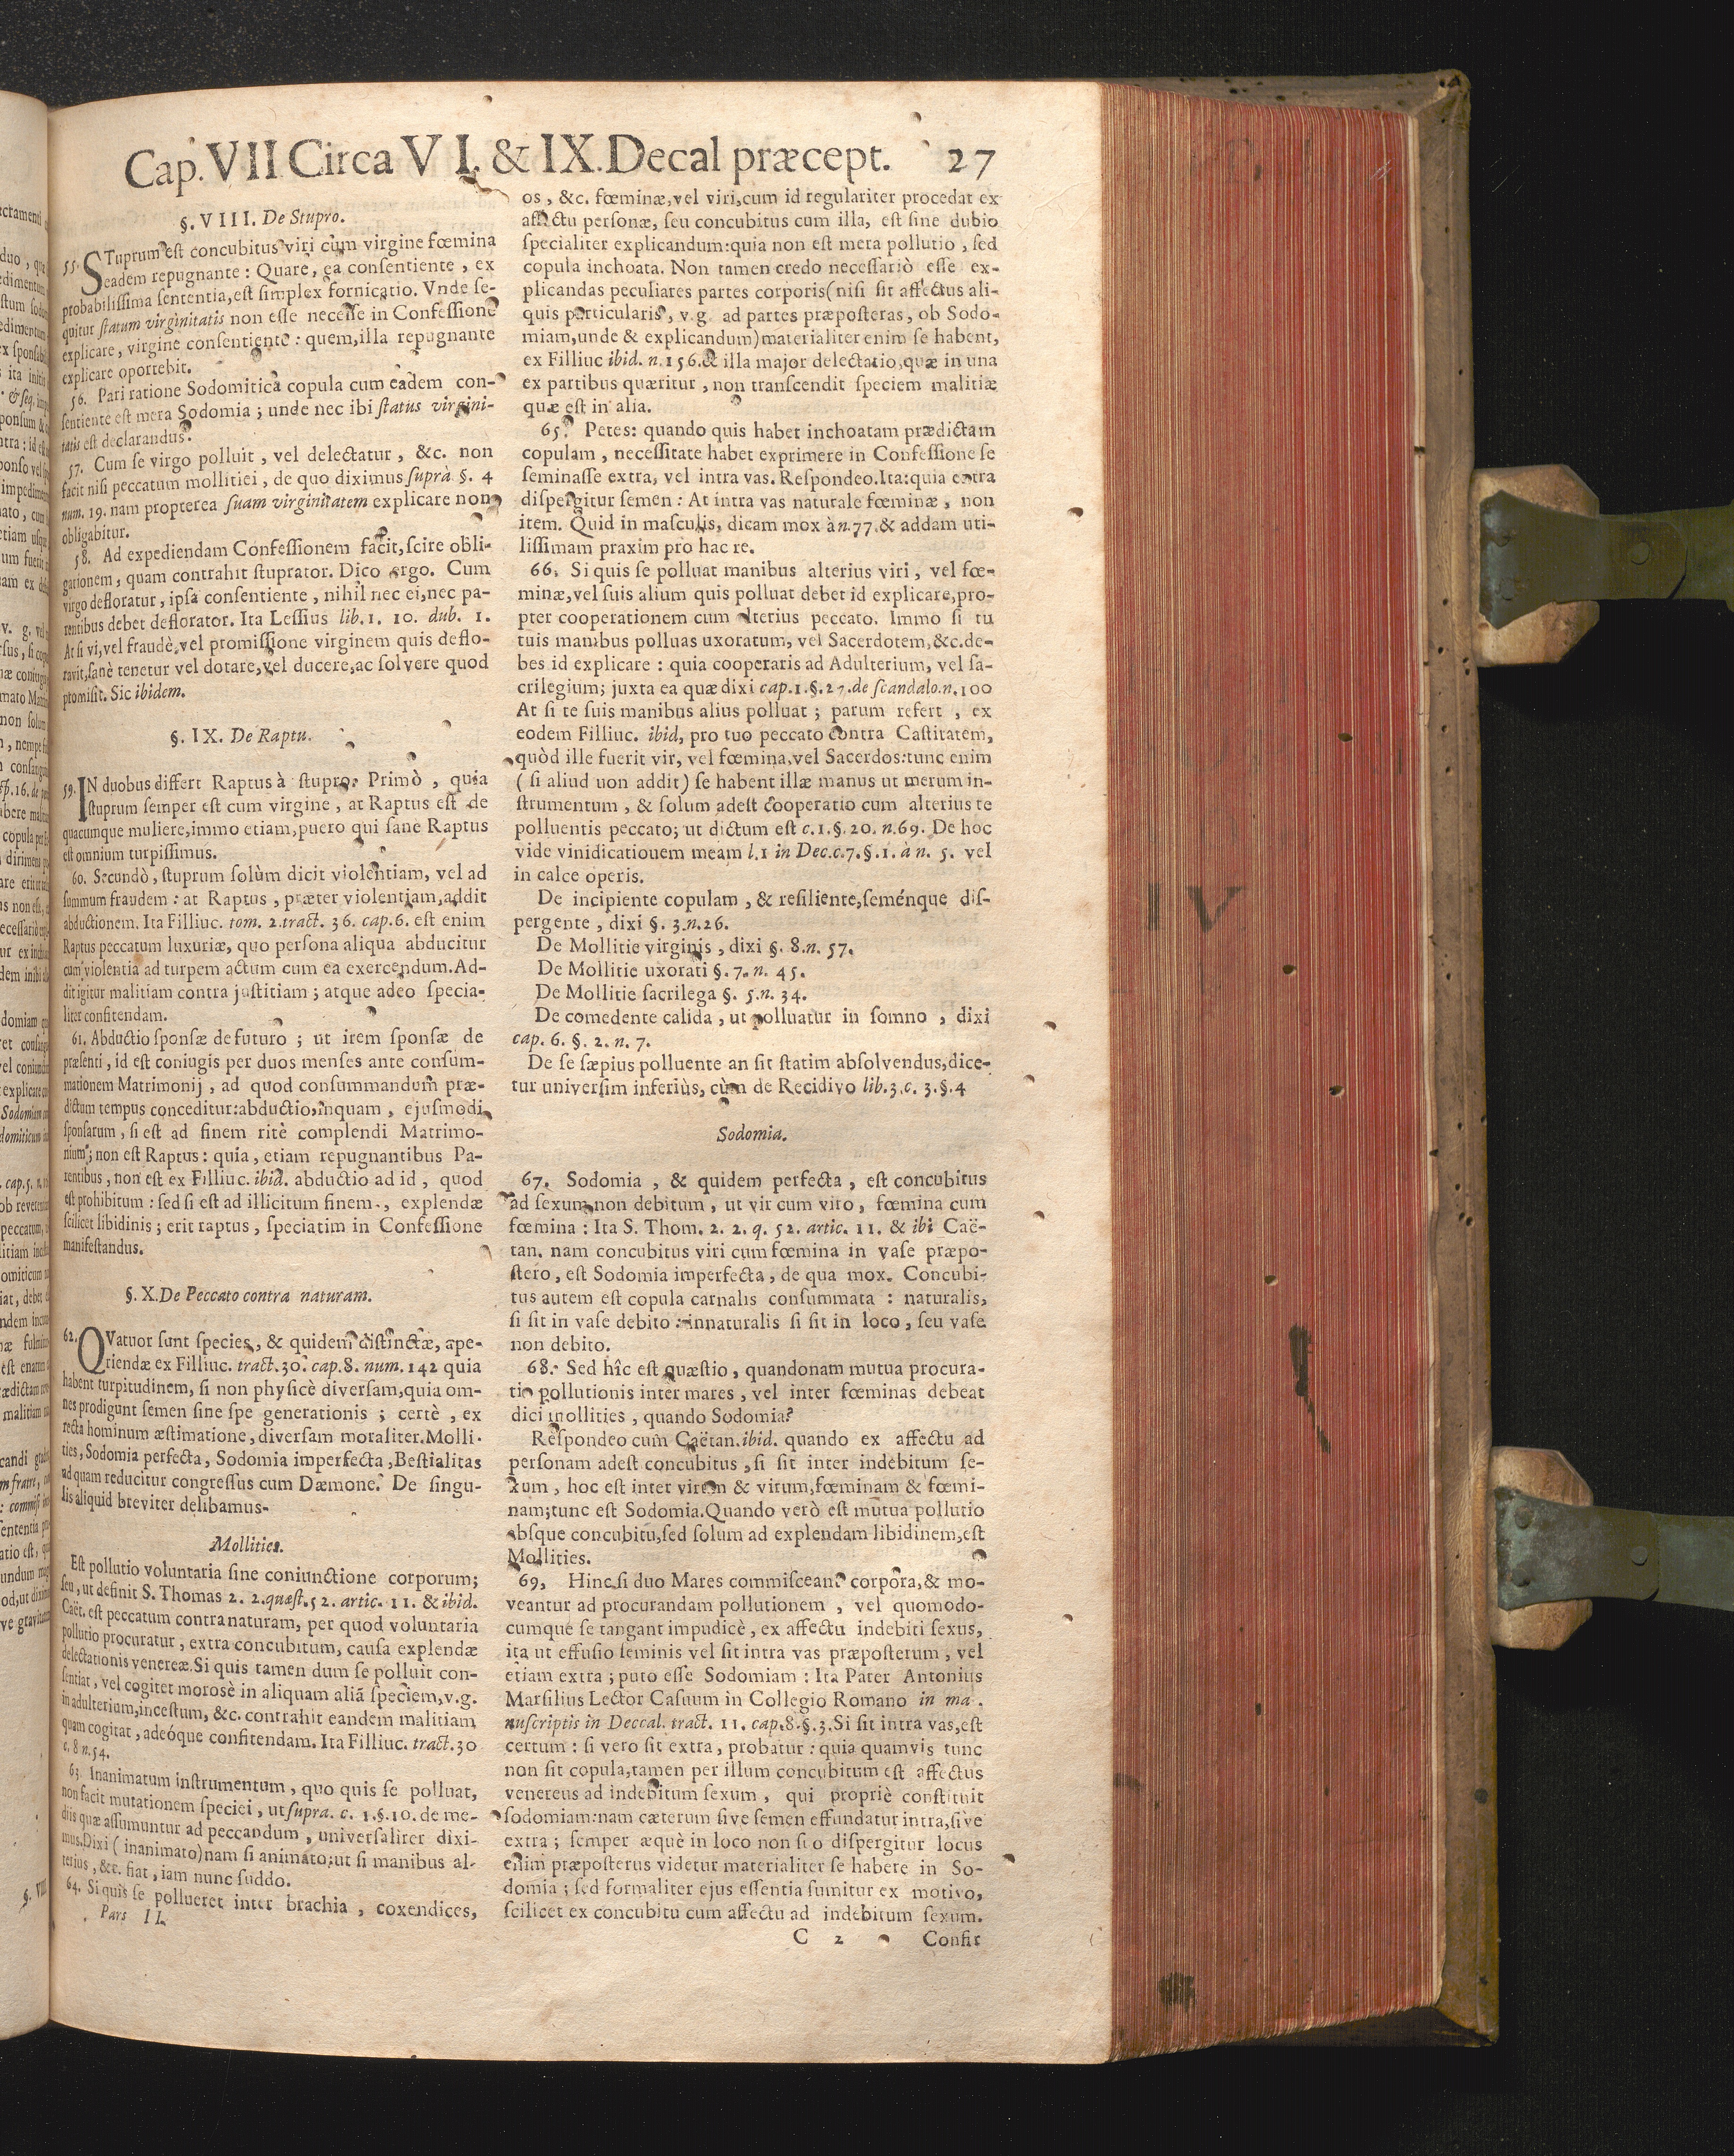 Cap. VII Circa VI. & IX. Decal præcept. 27
§. VIII. De Stupro.
55. STuprum est concubitus viri cum virgine fœmina
eadem repugnante : Quare, ea consentiente , ex
probabilissima sententia, est simplex fornicatio. Vnde se-
quitur statum virginitatis non esse necesse in Confessione
explicare, virgine consentiente : quem, illa repugnante
explicare oportebit.
56. Pari ratione Sodomitica copula cum eadem con-
sentiente est mera Sodomia ; unde nec ibi status virgini-
tatis est declarandus.
57. Cum se virgo polluit , vel delectatur , &c. non
facit nisi peccatum mollitiei , de quo diximus suprà §. 4
num. 19. nam propterea suam virginitatem explicare non
obligabitur.
58. Ad expediendam Confessionem facit, scire obli-
gationem, quam contrahit stuprator. Dico ergo. Cum
virgo defloratur, ipsa consentiente , nihil nec ei, nec pa-
rentibus debet deflorator. Ita Lessius lib. 1. 10. dub. 1.
At si vi, vel fraudè, vel promissione virginem quis deflo-
ravit, sanè tenetur vel dotare, vel ducere, ac solvere quod
promisit. Sic ibidem.
§. IX. De Raptu.
59. IN duobus differt Raptus à stupro. Primò , quia
stuprum semper est cum virgine , at Raptus est de
quacumque muliere, immo etiam, puero qui sane Raptus
est omnium turpissimus.
60. Secundò, stuprum solùm dicit violentiam, vel ad
summum fraudem : at Raptus , præter violentiam, addit
abductionem. Ita Filliuc. tom. 2. tract. 36. cap. 6. est enim
Raptus peccatum luxuriæ, quo persona aliqua abducitur
cum violentia ad turpem actum cum ea exercendum. Ad-
dit igitur malitiam contra justitiam ; atque adeo specia-
liter confitendam.
61. Abductio sponsæ de futuro ; ut irem sponsæ de
præsenti , id est coniugis per duos menses ante consum-
mationem Matrimonij , ad quod consummandum præ-
dictum tempus conceditur: abductio, inquam , ejusmodi
sponsarum , si est ad finem ritè complendi Matrimo-
nium ; non est Raptus : quia , etiam repugnantibus Pa-
rentibus , non est ex Filliuc. ibid. abductio ad id , quod
est prohibitum : sed si est ad illicitum finem , explendæ
scilicet libidinis ; erit raptus , speciatim in Confessione
manifestandus.
§. X. De Peccato contra naturam.
62. QVatuor sunt species, & quidem distinctæ, ape-
riendæ ex Filliuc. tract. 30. cap. 8. num. 142 quia
habent turpitudinem, si non physicè diversam, quia om-
nes prodigunt semen sine spe generationis ; certè , ex
recta hominum æstimatione, diversam moraliter. Molli-
ties, Sodomia perfecta, Sodomia imperfecta, Bestialitas
ad quam reducitur congressus cum Dæmone. De singu-
lis aliquid breviter delibamus.
Mollities.
Est pollutio voluntaria sine coniunctione corporum;
seu, ut definit S. Thomas 2. 2. quæst. 52. artic. 11. & ibid.
Caët. est peccatum contra naturam, per quod voluntaria
pollutio procuratur , extra concubitum, causa explendæ
delectationis venereæ. Si quis tamen dum se polluit con-
sentiat, vel cogitet morosè in aliquam aliã speciem, v.g.
in adulterium, incestum, &c. contrahit eandem malitiam
quam cogitat, adeóque confitendam. Ita Filliuc. tract. 30
c. 8 n. 54.
63. Inanimatum instrumentum , quo quis se polluat,
non facit mutationem speciei , ut supra. c. 1. §. 10. de me-
diis quæ assumuntur ad peccandum , universaliter dixi-
mus. Dixi ( inanimato) nam si animato: ut si manibus al-
terius , &c. fiat , iam nunc suddo.
64. Si quis se pollueret inter brachia , coxendices,
Pars II.
os , &c. fœminæ, vel viri, cum id regulariter procedat ex
affectu personæ, seu concubitus cum illa, est sine dubio
specialiter explicandum: quia non est mera pollutio , sed
copula inchoata. Non tamen credo necessariò esse ex-
plicandas peculiares partes corporis (nisi sit affectus ali-
quis particularis , v. g. ad partes præposteras , ob Sodo-
miam, unde & explicandum) materialiter enim se habent,
ex Filliuc ibid. n. 156. & illa major delectatio, quæ in una
ex partibus quæritur , non transcendit speciem malitiæ
quæ est in alia.
65. Petes: quando quis habet inchoatam prædictam
copulam , necessitate habet exprimere in Confessione se
seminasse extra, vel intra vas. Respondeo. Ita: quia extra
dispergitur semen : At intra vas naturale fœminæ , non
item. Quid in masculis, dicam mox à n. 77. & addam uti-
lissimam praxim pro hac re.
66. Si quis se polluat manibus alterius viri , vel fœ-
minæ, vel suis alium quis polluat debet id explicare, pro-
pter cooperationem cum alterius peccato. Immo si tu
tuis manibus polluas uxoratum, vel Sacerdotem, &c. de-
bes id explicare : quia cooperaris ad Adulterium, vel sa-
crilegium; juxta ea quæ dixi cap. 1. §. 27. de scandalo. n. 100
At si te suis manibus alius polluat ; parum refert , ex
eodem Filliuc. ibid, pro tuo peccato contra Castitatem,
quòd ille fuerit vir, vel fœmina, vel Sacerdos: tunc enim
( si aliud uon addit) se habent illæ manus ut merum in-
strumentum , & solum adest cooperatio cum alterius te
polluentis peccato; ut dictum est c. 1. §. 20. n. 69. De hoc
vide vinidicationem meam l. 1 in Dec. c. 7. §. 1. à n. 5. vel
in calce operis.
De incipiente copulam , & resiliente, seménque dis-
pergente , dixi §. 3. n. 26.
De Mollitie virginis , dixi §. 8. n. 57.
De Mollitie uxorati §. 7. n. 45.
De Mollitie sacrilega §. 5. n. 34.
De comedente calida , ut polluatur in somno , dixi
cap. 6. §. 2. n. 7.
De se sæpius polluente an sit statim absolvendus, dice-
tur universim inferiùs, cùm de Recidivo lib. 3. c. 3. §. 4
Sodomia.
67. Sodomia , & quidem perfecta , est concubitus
ad sexum non debitum , ut vir cum viro , fœmina cum
fœmina : Ita S. Thom. 2. 2. q. 52. artic. 11. & ibi Caë-
tan. nam concubitus viri cum fœmina in vase præpo-
stero , est Sodomia imperfecta , de qua mox. Concubi-
tus autem est copula carnalis consummata : naturalis,
si sit in vase debito : innaturalis si sit in loco , seu vase
non debito.
68. Sed hîc est quæstio , quandonam mutua procura-
tio pollutionis inter mares , vel inter fœminas debeat
dici mollities , quando Sodomia?
Respondeo cum Caëtan. ibid. quando ex affectu ad
personam adest concubitus , si sit inter indebitum se-
xum , hoc est inter virum & virum, fœminam & fœmi-
nam; tunc est Sodomia. Quando verò est mutua pollutio
absque concubitu, sed solum ad explendam libidinem, est
Mollities.
69. Hinc si duo Mares commisceant corpora, & mo-
veantur ad procurandam pollutionem , vel quomodo-
cumque se tangant impudicè , ex affectu indebiti sexus,
ita ut effusio seminis vel sit intra vas præposterum , vel
etiam extra ; puto esse Sodomiam : Ita Pater Antonius
Marsilius Lector Casuum in Collegio Romano in ma-
nuscriptis in Deccal. tract. 11. cap. 8. §. 3. Si sit intra vas, est
certum : si vero sit extra , probatur : quia quamvis tunc
non sit copula, tamen per illum concubitum est affectus
venereus ad indebitum sexum , qui propriè constituit
sodomiam: nam cæterum sive semen effundatur intra, sive
extra ; semper æquè in loco non suo dispergitur locus
enim præposterus videtur materialiter se habere in So-
domia ; sed formaliter ejus essentia sumitur ex motivo,
scilicet ex concubitu cum affectu ad indebitum sexum.
C 2 Confir